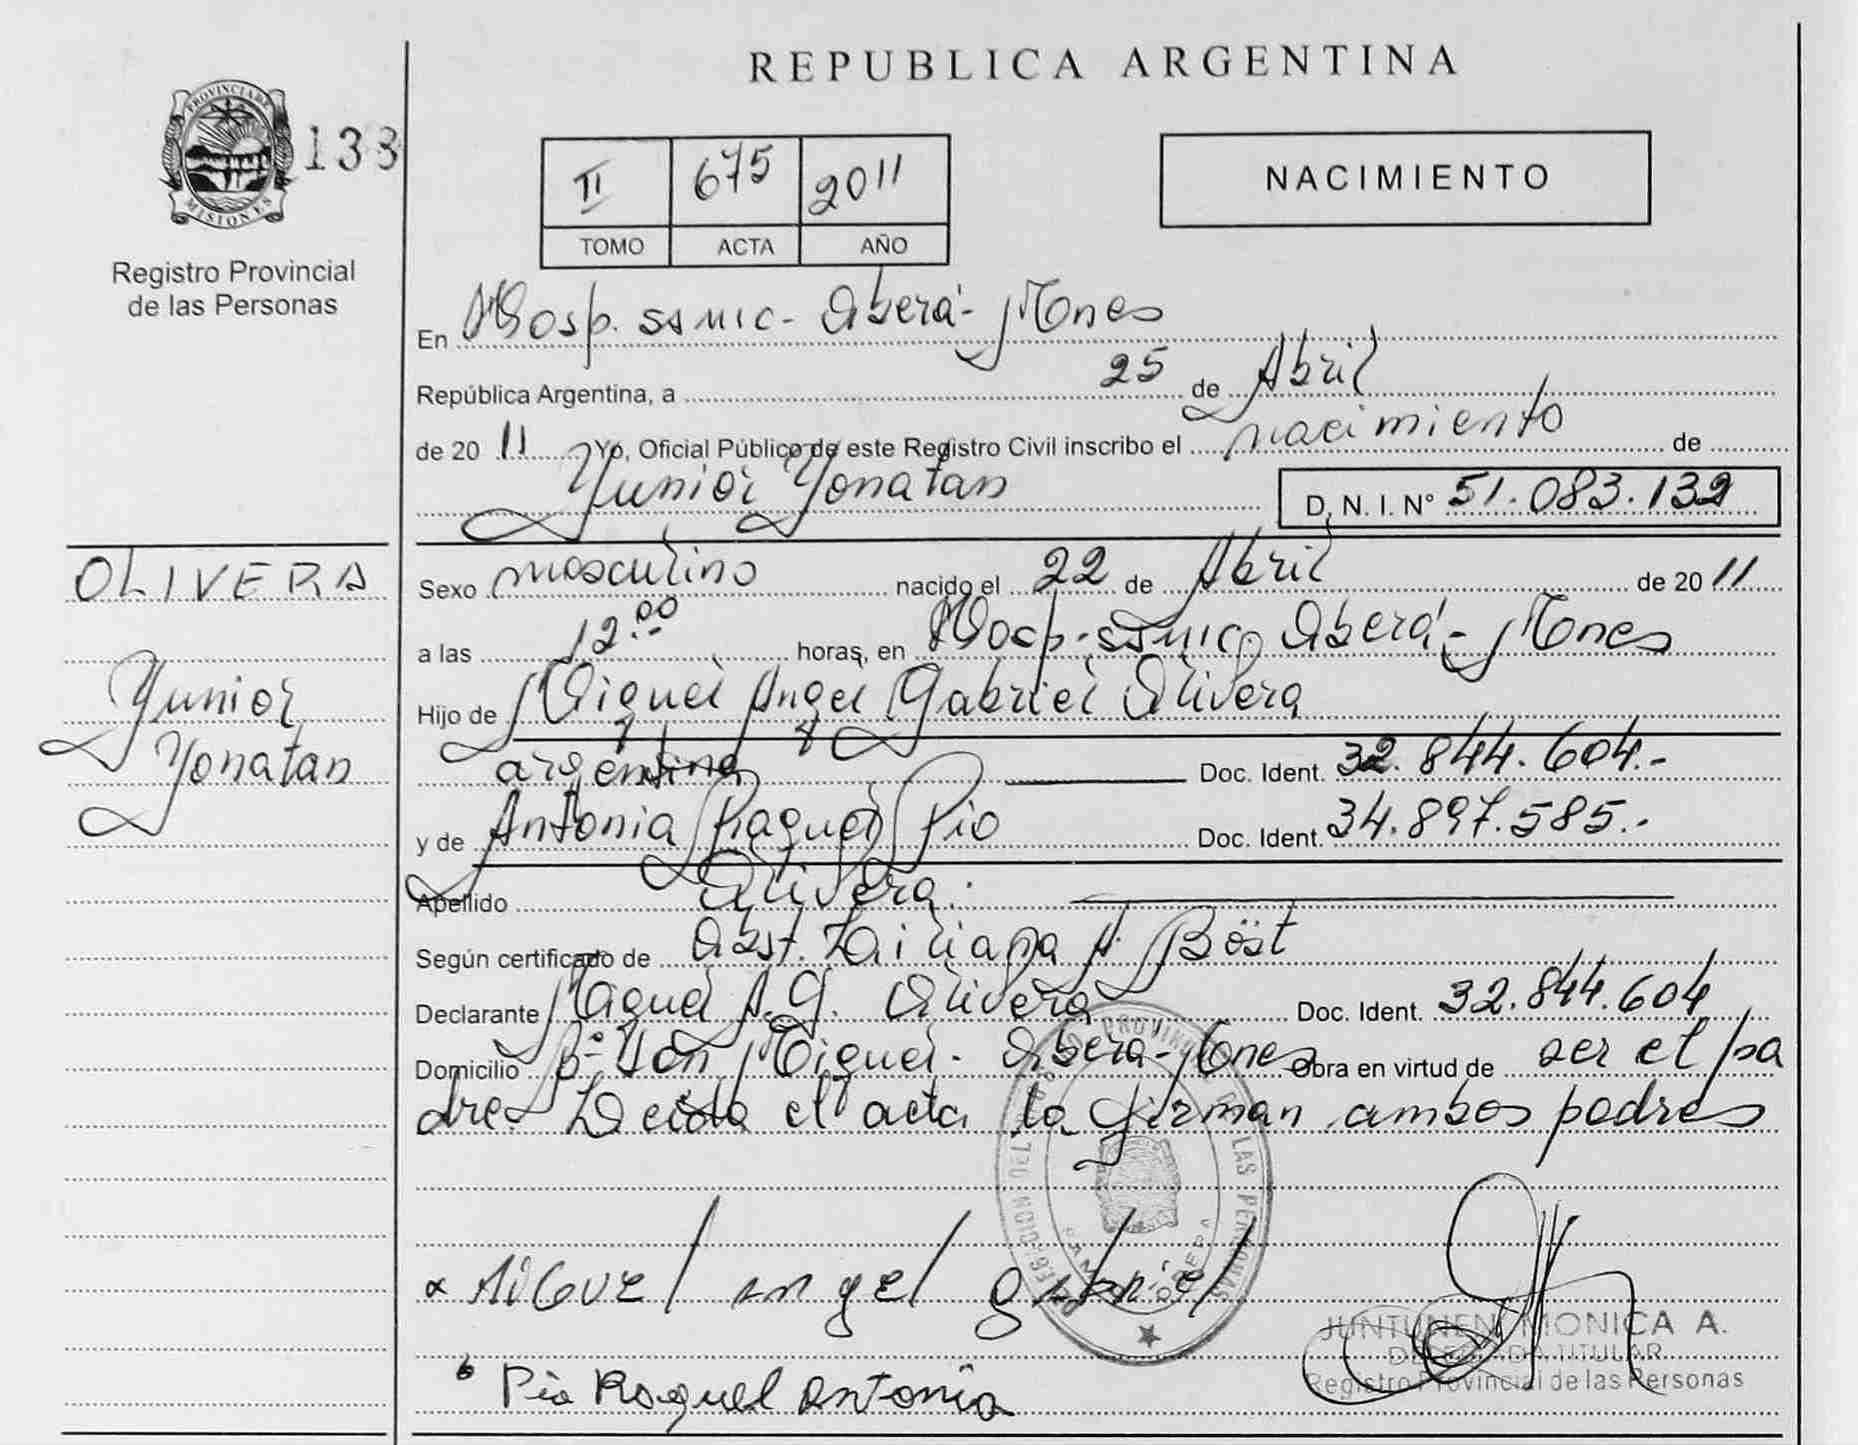 REPUBLICA ARGENTINA
PROVINCIA DE
MISIONES
133
Registro Provincial
de las Personas
II 675 2011
TOMO ACTA AÑO
NACIMIENTO
En Hosp. SSMIC - Oberá - Mnes
República Argentina, a 25 de Abril
de 20 11 Yo, Oficial Público de este Registro Civil inscribo el nacimiento de
Yunior Yonatan
D. N. I. N° 51.083.139
OLIVERA
Yunior
Yonatan
Sexo masculino nacido el 22 de Abril de 20 11
a las 12.00 horas, en Hosp. SSMIC Oberá - Mnes
Hijo de Miguel Angel Gabriel Olivera
argentina Doc. Ident. 32.844.604.-
y de Antonia Raquel Pio Doc. Ident. 34.897.585.-
Apellido Olivera.
Según certificado de Obst. Liliana A. Böst
Declarante Miguel A. G. Olivera Doc. Ident. 32.844.604
Domicilio Bº Von Miguel - Oberá - Mnes Obra en virtud de ser el pa
dre. Leida el acta la firman ambos padres
Miguel angel gabriel
Pio Raquel Antonia
JUNTUNEN MONICA A.
DELEGADA TITULAR
Registro Provincial de las Personas